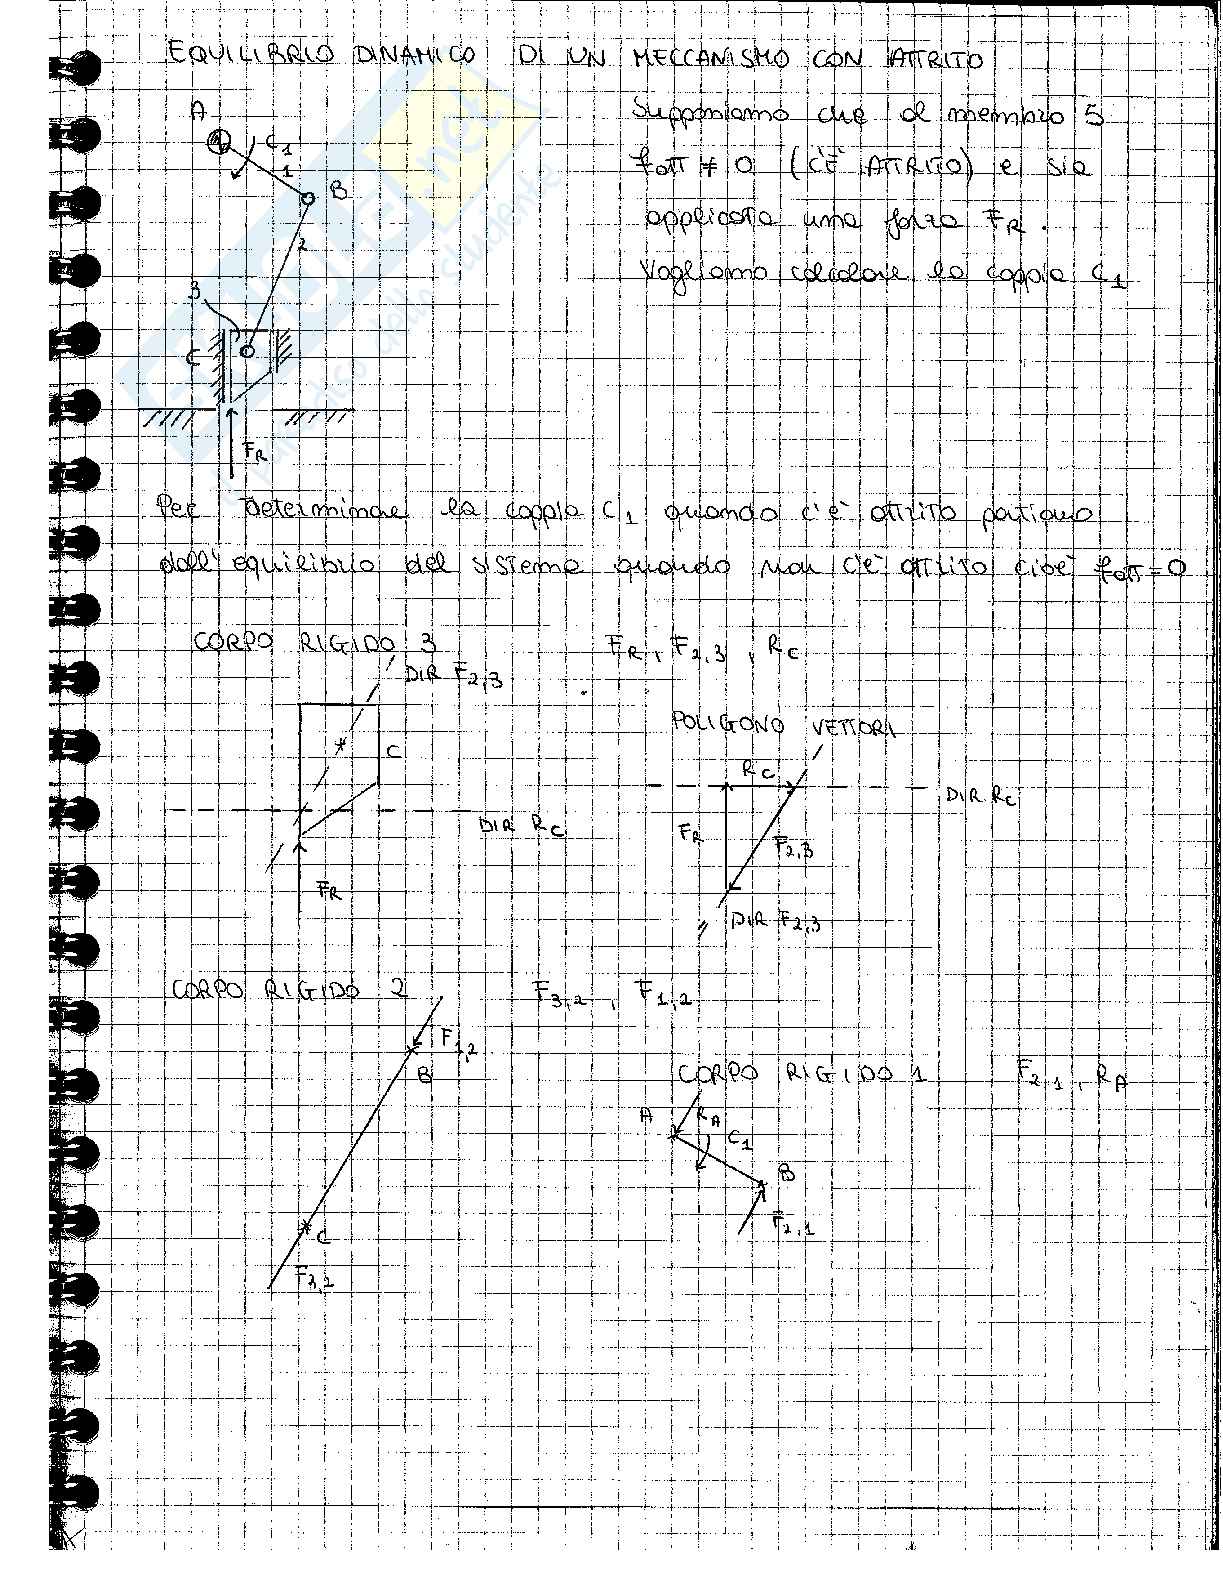 EQUILIBRIO DINAMICO DI UN MECCANISMO CON ATTRITO
A
C1
1
B
2
3
C
FR
Supponiamo che al membro 5
fatt ≠ 0 (C'È ATTRITO) e sia
applicata una forza FR.
Vogliamo calcolare la coppia C1
Per determinare la coppia C1 quando c'è attrito partiamo
dall'equilibrio del sistema quando non c'è attrito cioè fatt=0
CORPO RIGIDO 3
FR, F2,3, RC
DIR F2,3
C
DIR RC
FR
POLIGONO VETTORI
RC
DIR RC
FR
F2,3
// DIR F2,3
CORPO RIGIDO 2
F3,2, F1,2
F1,2
B
C
F3,2
CORPO RIGIDO 1
F2,1, RA
A
RA
C1
B
F2,1